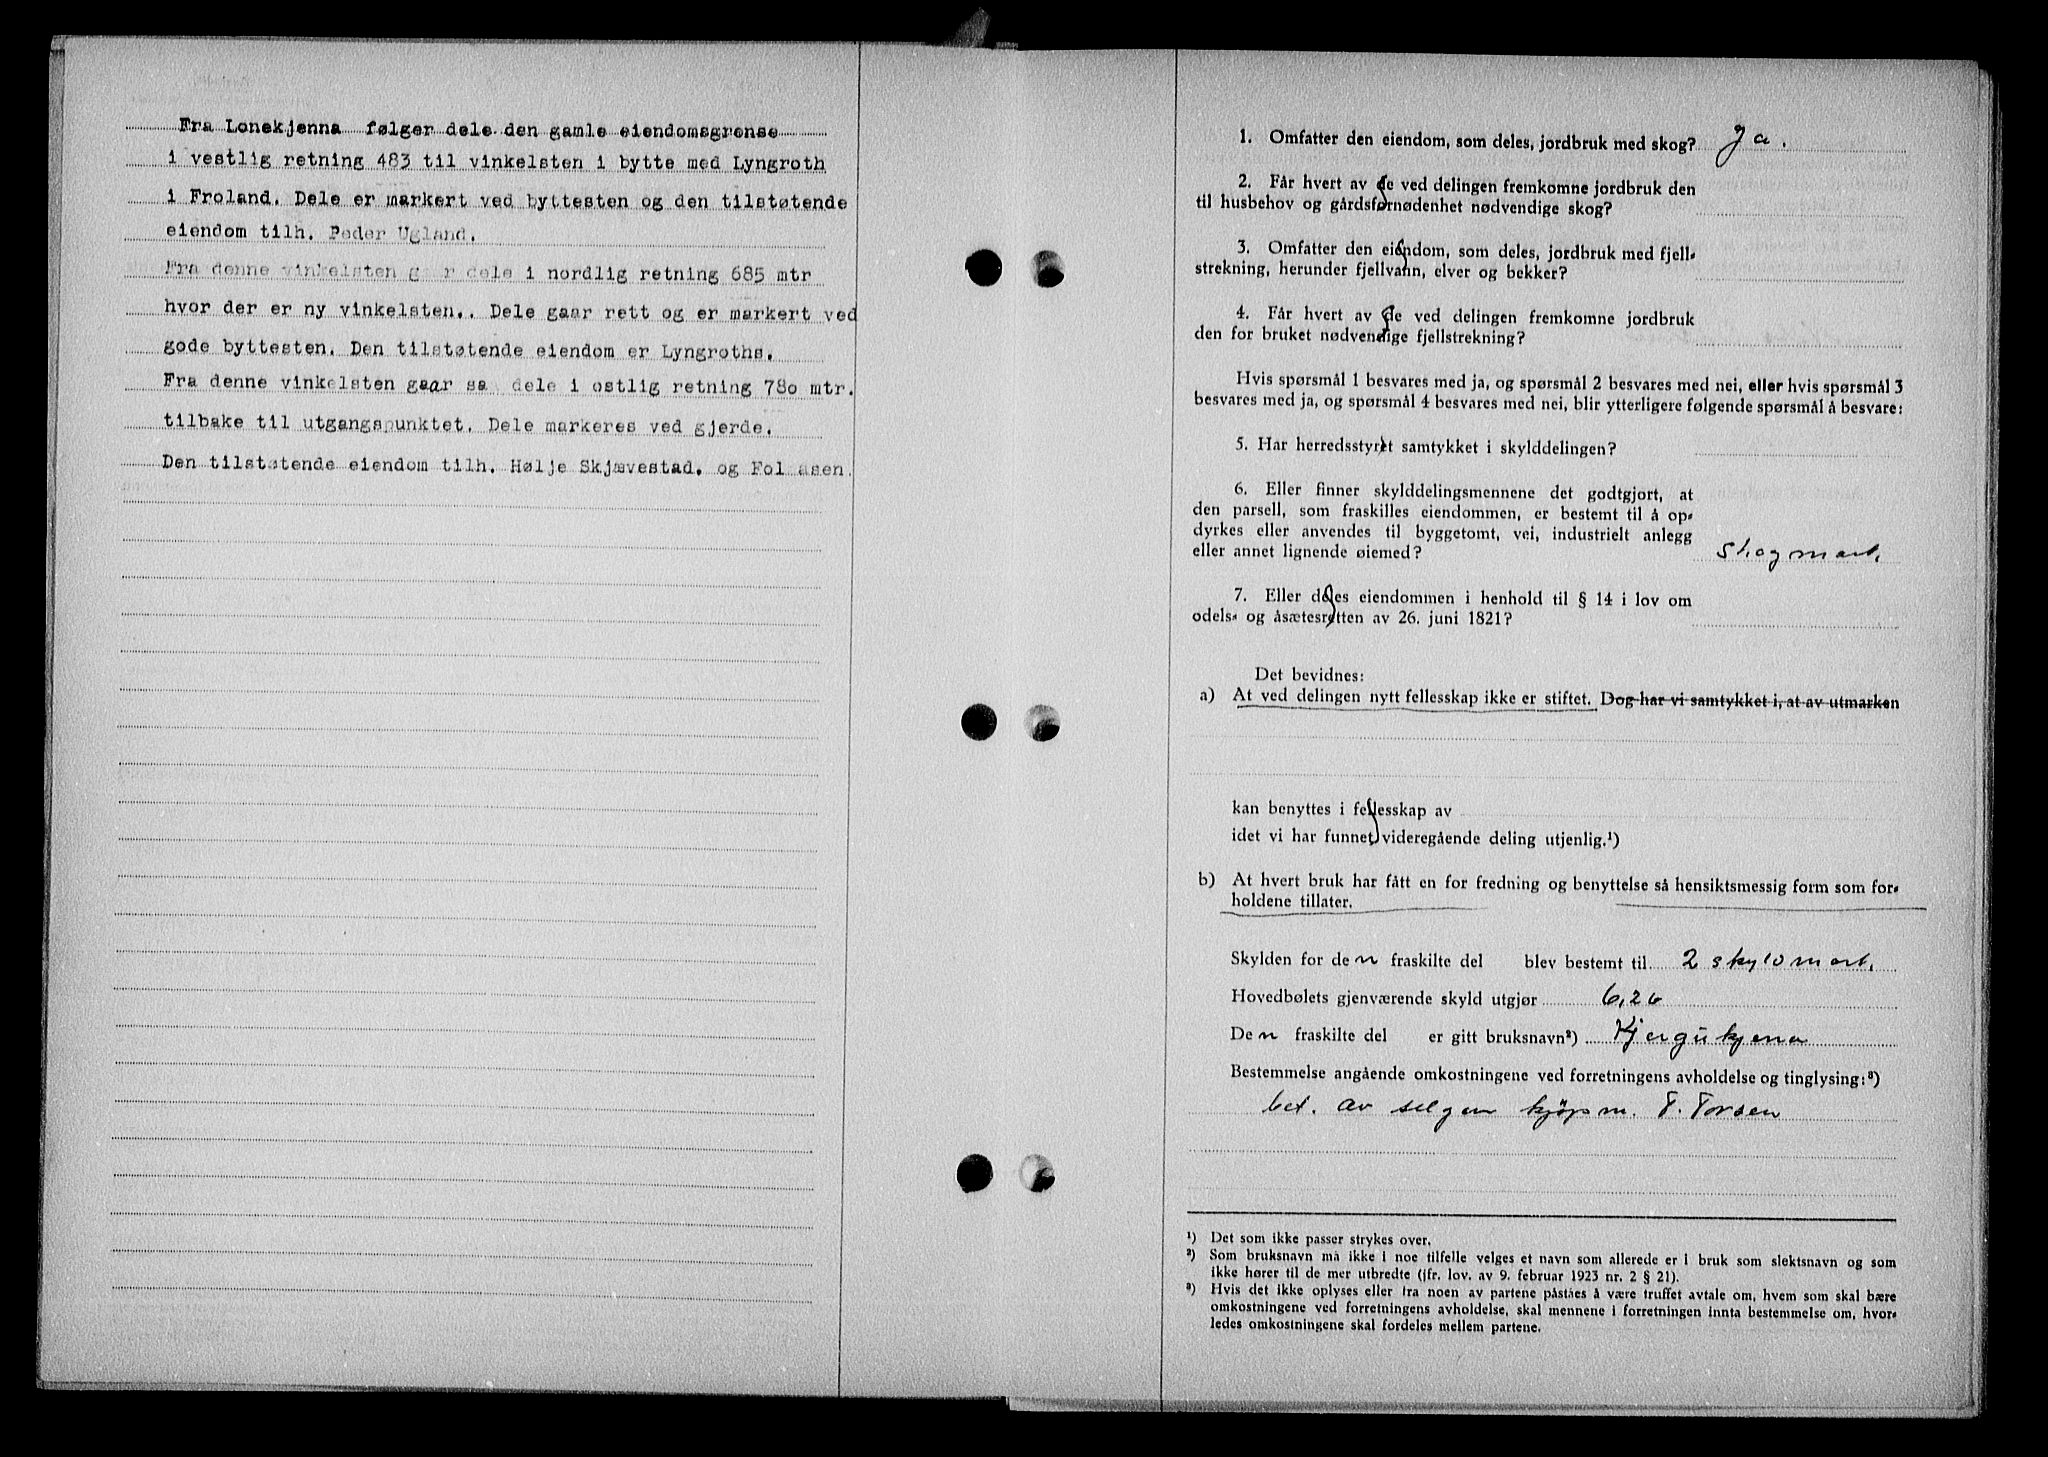 Fra Lonekjenna følger dele den gamle eiendomsgrense
i vestlig retning 483 til vinkelsten i bytte med Lyngroth
i Froland. Dele er markert ved byttesten og den tilstøtende
eiendom tilh. Peder Ugland.
Fra denne vinkelsten gaar dele i nordlig retning 685 mtr
hvor der er ny vinkelsten.. Dele gaar rett og er markert ved
gode byttesten. Den tilstøtende eiendom er Lyngroths.
Fra denne vinkelsten gaar sa dele i ostlig retning 780 mtr.
tilbake til utgangspunktet. Dele markeres ved gjerde.
Den tilstøtende eiendom tilh. Hølje Skjævestad. og Fol asen.
1. Omfatter den eiendom, som deles, jordbruk med skog? Ja.
2. Får hvert av de ved delingen fremkomne jordbruk den
til husbehov og gårdsfornødenhet nødvendige skog?
3. Omfatter den eiendom, som deles, jordbruk med fjell-
strekning, herunder fjellvann, elver og bekker?
4. Får hvert av de ved delingen fremkomne jordbruk
den for bruket nødvendige fjellstrekning?
Hvis spørsmål 1 besvares med ja, og spørsmål 2 besvares med nei, eller hvis spørsmål 3
besvares med ja, og spørsmål 4 besvares med nei, blir ytterligere følgende spørsmål å besvare:
5. Har herredsstyret samtykket i skylddelingen?
6. Eller finner skylddelingsmennene det godtgjort, at
den parsell, som fraskilles eiendommen, er bestemt til å op-
dyrkes eller anvendes til byggetomt, vei, industrielt anlegg
eller annet lignende øiemed? skogmark.
7. Eller deles eiendommen i henhold til § 14 i lov om
odels- og åsætesretten av 26. juni 1821?
Det bevidnes:
a) At ved delingen nytt fellesskap ikke er stiftet. Dog har vi samtykket i, at av utmarken
kan benyttes i fellesskap av
idet vi har funnet videregående deling utjenlig.¹)
b) At hvert bruk har fått en for fredning og benyttelse så hensiktsmessig form som for-
holdene tillater.
Skylden for den fraskilte del blev bestemt til 2 skyldmark.
Hovedbølets gjenværende skyld utgjør 6,26
Den fraskilte del er gitt bruksnavn²) Kjergukjena
Bestemmelse angående omkostningene ved forretningens avholdelse og tinglysing:³)
bet. av selgeren kjøpm. T. Torsen
¹) Det som ikke passer strykes over.
²) Som bruksnavn må ikke i noe tilfelle velges et navn som allerede er i bruk som slektsnavn og som
ikke hører til de mer utbredte (jfr. lov. av 9. februar 1923 nr. 2 § 21).
³) Hvis det ikke oplyses eller fra noen av partene påståes å være truffet avtale om, hvem som skal bære
omkostningene ved forretningens avholdelse, skal mennene i forretningen innta bestemmelse om, hvor-
ledes omkostningene skal fordeles mellem partene.